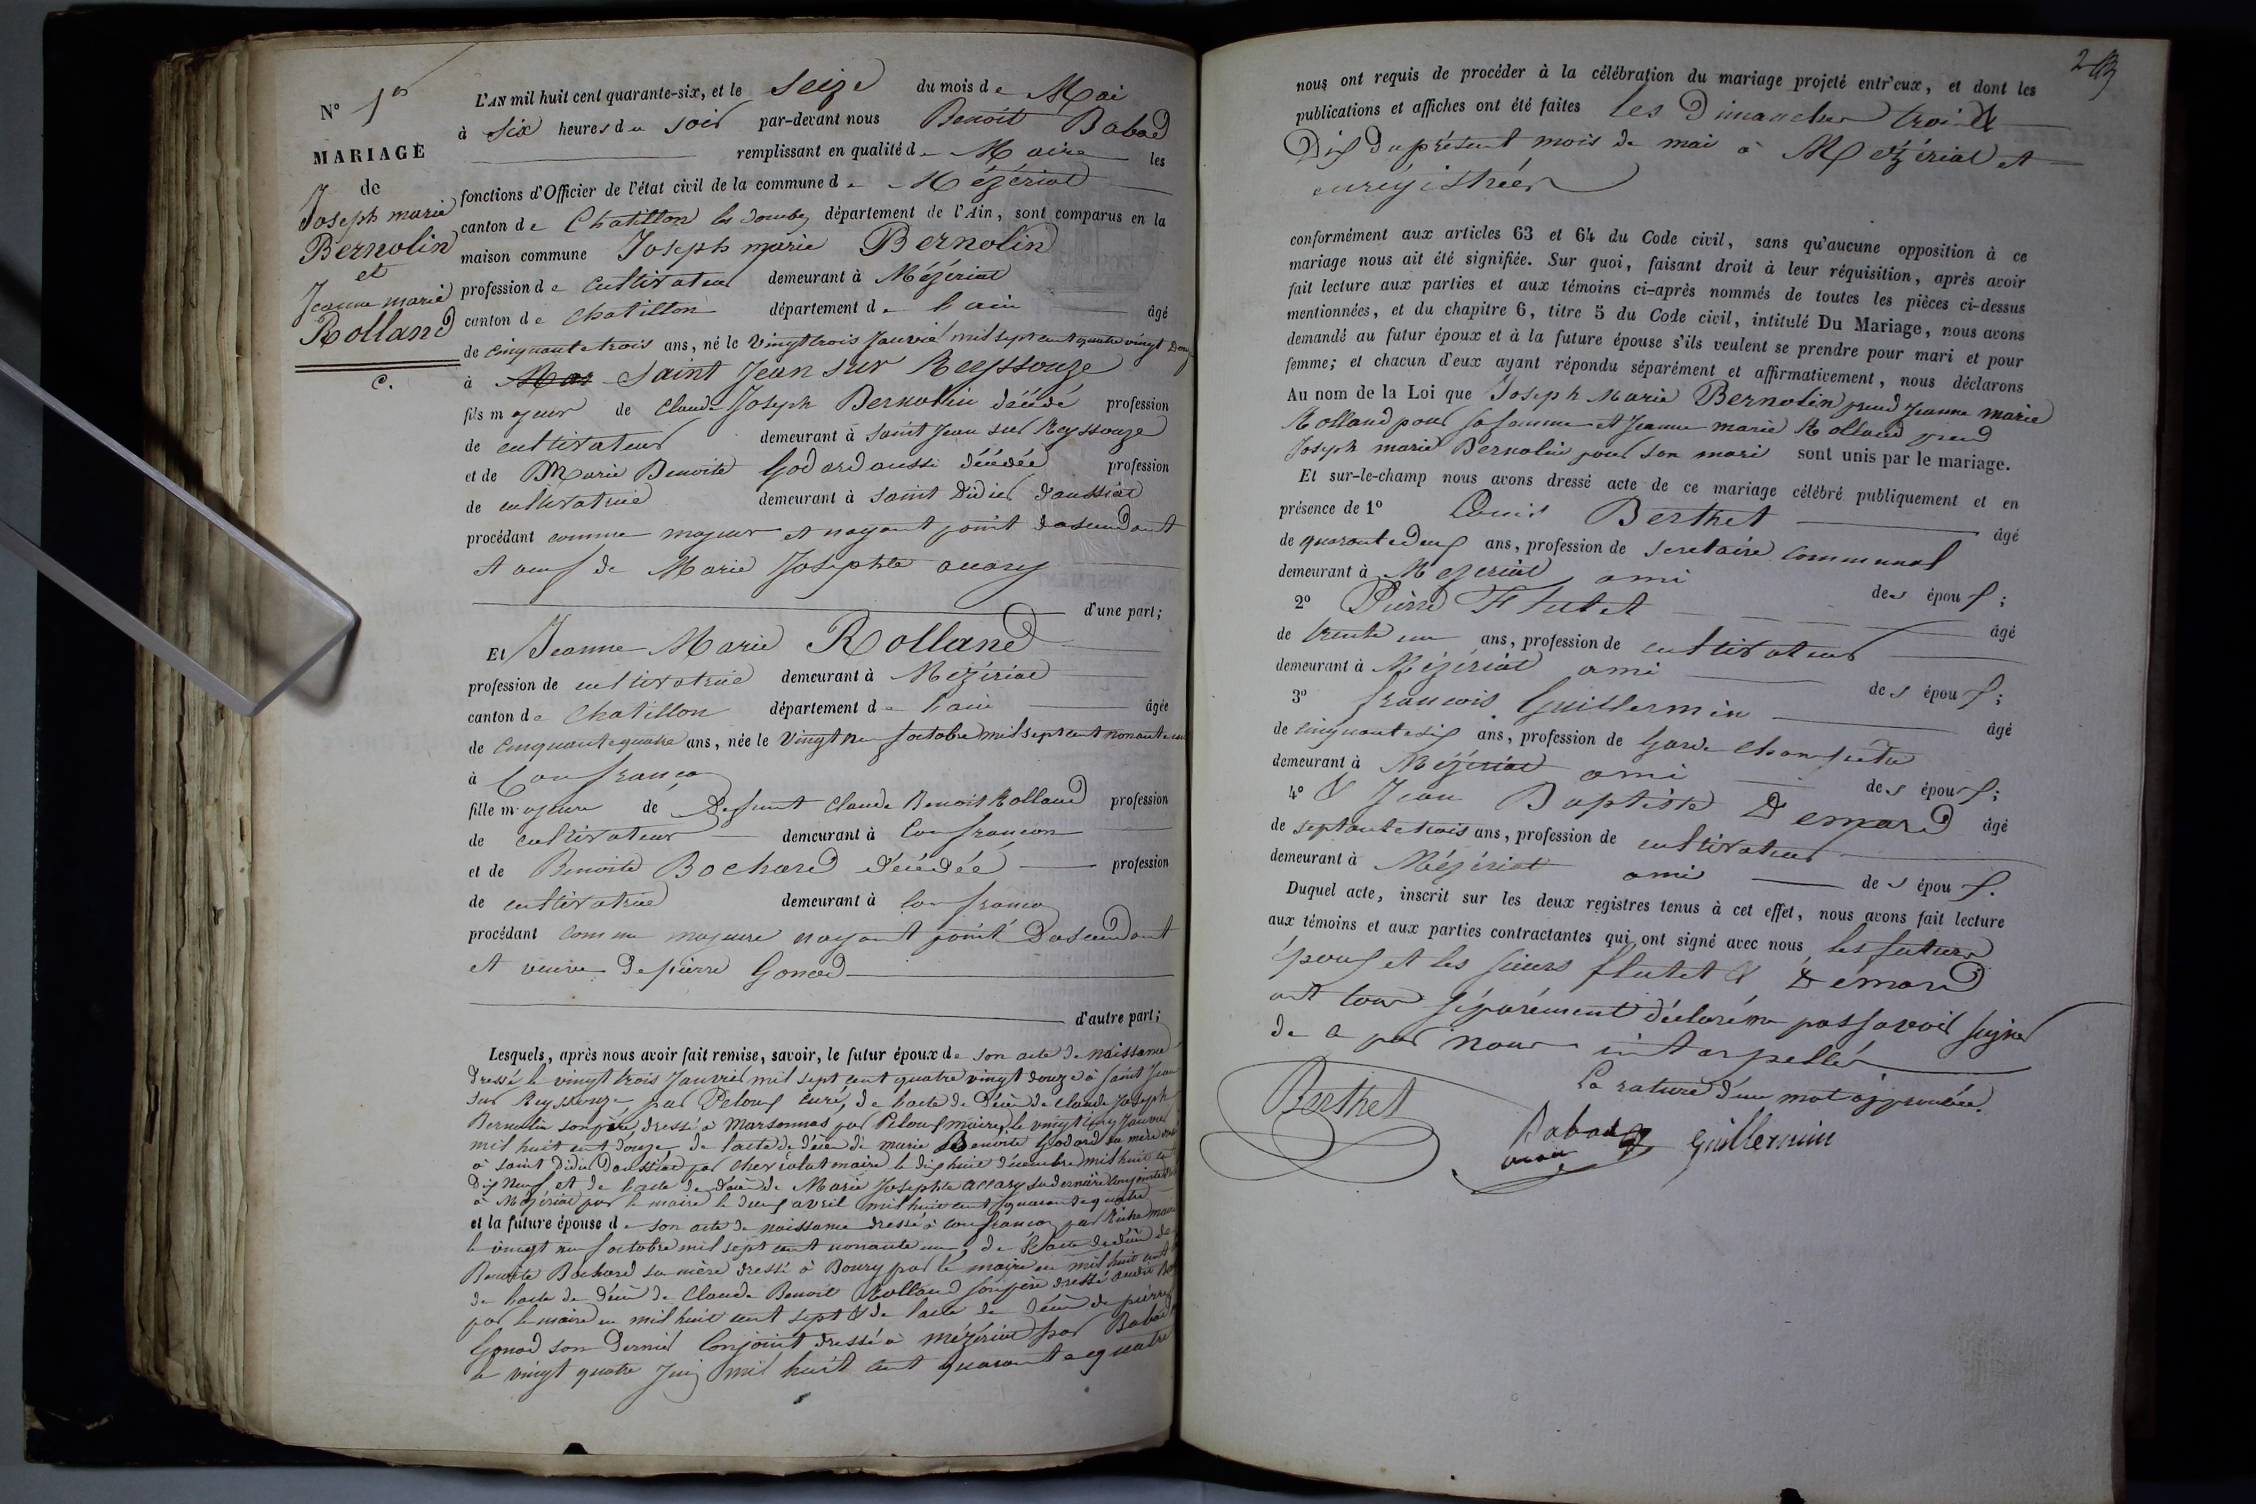 N° 1er
MARIAGE
de
Joseph marie
Bernolin
et
Jeanne marie
Rolland
C.
L'AN mil huit cent quarante-six, et le seize du mois de Mai
à six heures du soir par-devant nous Benoit Babad
remplissant en qualité de Maire les
fonctions d'Officier de l'état civil de la commune de Mézériat
canton de Chatillon les dombes département de l'Ain, sont comparus en la
maison commune Joseph marie Bernolin
profession de cultivateur demeurant à Mézériat
canton de chatillon département de l'ain âgé
de cinquante trois ans, né le vingt trois Janvier mil sept cent quatre vingt douze
à Saint Jean sur Reyssouze
fils majeur de Claude Joseph Bernolin décédé profession
de cultivateur demeurant à saint Jean sur Reyssouze
et de Marie Benoite Godard aussi décédée profession
de cultivatrice demeurant à saint Didier d'aussiat
procédant comme majeur et nayant point dascendant
et veuf de Marie Josephte accary
d'une part;
Et Jeanne Marie Rolland
profession de cultivatrice demeurant à Mézériat
canton de Chatillon département de l'ain âgée
de cinquante quatre ans, née le vingt neuf octobre mil sept cent nonante un
à Confrançon
fille majeure de Defunt Claude Benoit Rolland profession
de cultivateur demeurant à Confrancon
et de Benoite Bochard décédée profession
de cultivatrice demeurant à Confrançon
procédant comme majeure nayant point Dascendant
et veuve de pierre Gonod
d'autre part;
Lesquels, après nous avoir fait remise, savoir, le futur époux de son acte de naissance
dressé le vingt trois Janvier mil sept cent quatre vingt douze à saint Jean
sur Reyssouze par Peloux curé, de lacte de décès de claude Joseph
Bernolin son père dressé à Marsonnas par Peloux maire, le vingt cinq Janvier
mil huit cent douze, de lacte de décès de marie Benoite Godard sa mère
à saint Didier Daussiat par maire le dix huit décembre mil huit cent
dix neuf et de lacte de décès de Marie Josephte accary sa dernière conjointe
à Mézériat par le maire le deux avril mil huit cent quarante quatre
et la future épouse de son acte de naissance dressé à Confrançon par maire
le vingt neuf octobre mil sept cent nonante un, de lacte de décès de
Benoite Bochard sa mère dressé à Bourg par le maire en mil huit cent
de lacte de décès de Claude Benoit Rolland son père dressé audit
par le maire en mil huit cent sept & de lacte de décès de pierre
Gonod son dernier conjoint dressé à mézériat par Babad
le vingt quatre Juin mil huit cent quarante quatre
nous ont requis de procéder à la célébration du mariage projeté entr'eux, et dont les
publications et affiches ont été faites les Dimanches trois &
Dix du présent mois de mai à Mézériat et
enregistrées
conformément aux articles 63 et 64 du Code civil, sans qu'aucune opposition à ce
mariage nous ait été signifiée. Sur quoi, faisant droit à leur réquisition, après avoir
fait lecture aux parties et aux témoins ci-après nommés de toutes les pièces ci-dessus
mentionnées, et du chapitre 6, titre 5 du Code civil, intitulé Du Mariage, nous avons
demandé au futur époux et à la future épouse s'ils veulent se prendre pour mari et pour
femme; et chacun d'eux ayant répondu séparément et affirmativement, nous déclarons
Au nom de la Loi que Joseph Marie Bernolin prend Jeanne marie
Rolland pour sa femme et Jeanne marie Rolland prend
Joseph marie Bernolin pour son mari sont unis par le mariage.
Et sur-le-champ nous avons dressé acte de ce mariage célébré publiquement et en
présence de 1° Louis Berthet âgé
de quarante deux ans, profession de secretaire communal
demeurant à Mezeriat ami des époux;
2° Pierre Flutet âgé
de trente un ans, profession de cultivateur
demeurant à Mézériat ami des époux;
3° francois Guillermin âgé
de cinquante six ans, profession de Garde champetre
demeurant à Mézériat ami des époux;
4° & Jean Baptiste Demard âgé
de septante trois ans, profession de cultivateur
demeurant à Mézériat ami des époux.
Duquel acte, inscrit sur les deux registres tenus à cet effet, nous avons fait lecture
aux témoins et aux parties contractantes qui ont signé avec nous, les futurs
époux et les sieurs flutet & Demard
ont tous séparément déclaré ne pas savoir signer
de ce par nous interpellés
La rature d'un mot approuvée.
Berthet
Babad
maire
Guillermin